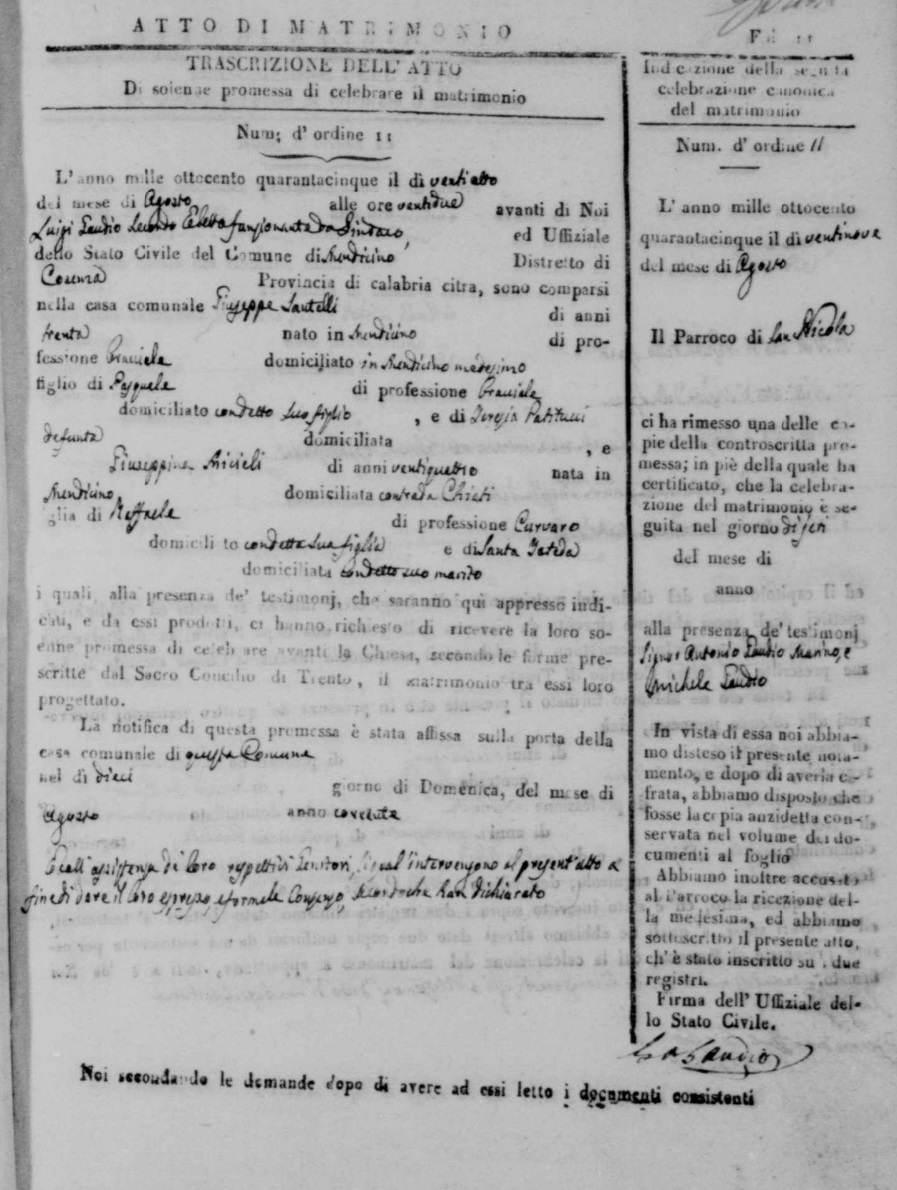 ATTO DI MATRIMONIO
TRASCRIZIONE DELL'ATTO
Di solenne promessa di celebrare il matrimonio
Num: d'ordine 11
L'anno mille ottocento quarantacinque il dì venti otto
del mese di Agosto alle ore ventidue avanti di Noi
Luigi Gaudio Secondo Eletto funzionante da Sindaco, ed Uffiziale
dello Stato Civile del Comune di Mendicino Distretto di
Cosenza Provincia di calabria citra, sono comparsi
nella casa comunale Giuseppe Santelli di anni
trenta nato in Mendicino di pro-
fessione Braciale domiciliato in Mendicino medesimo
figlio di Pasquale di professione Braciale
domiciliato con detto suo figlio, e di Teresia Patitucci
defunta domiciliata , e
Giuseppina di anni ventiquattro nata in
Mendicino domiciliata contrada Chiati
glia di Raffaele di professione
domiciliato con detta sua figlia e di Santa
domiciliata con detto suo marito
i quali, alla presenza de' testimonj, che saranno quì appresso indi-
cati, e da essi prodotti, ci hanno richiesto di ricevere la loro so-
enne promessa di celebrare avanti la Chiesa, secondo le forme pre-
scritte dal Sacro Concilio di Trento, il matrimonio tra essi loro
progettato.
La notifica di questa promessa è stata affissa sulla porta della
casa comunale di questa Comune
nel dì dieci giorno di Domenica, del mese di
Agosto anno corrente
Coll'assistenza de' loro rispettivi Genitori, li quali intervengono al present'atto a
fine di dare il loro espresso, e formale Consenso, secondo che han dichiarato
Noi secondando le demande dopo di avere ad essi letto i documenti consistenti
Fol. 11
Indicazione della seguita
celebrazione canonica
del matrimonio
Num. d'ordine 11
L'anno mille ottocento
quarantacinque il dì ventinove
del mese di Agosto
Il Parroco di San Nicola
ci ha rimesso una delle co-
pie della controscritta pro-
messa; in piè della quale ha
certificato, che la celebra-
zione del matrimonio è se-
guita nel giorno di jeri
del mese di
anno
alla presenza de' testimonj
Signor Antonio Gaudio Marino, e
Michele Gaudio
In vista di essa noi abbia-
mo disteso il presente nota-
mento, e dopo di averla ci-
frata, abbiamo disposto che
fosse la copia anzidetta con-
servata nel volume dei do-
cumenti al foglio
Abbiamo inoltre accusato
al Parroco la ricezione del-
la medesima, ed abbiamo
sottoscritto il presente atto,
ch'è stato inscritto su i due
registri.
Firma dell'Uffiziale del-
lo Stato Civile.
Gaudio